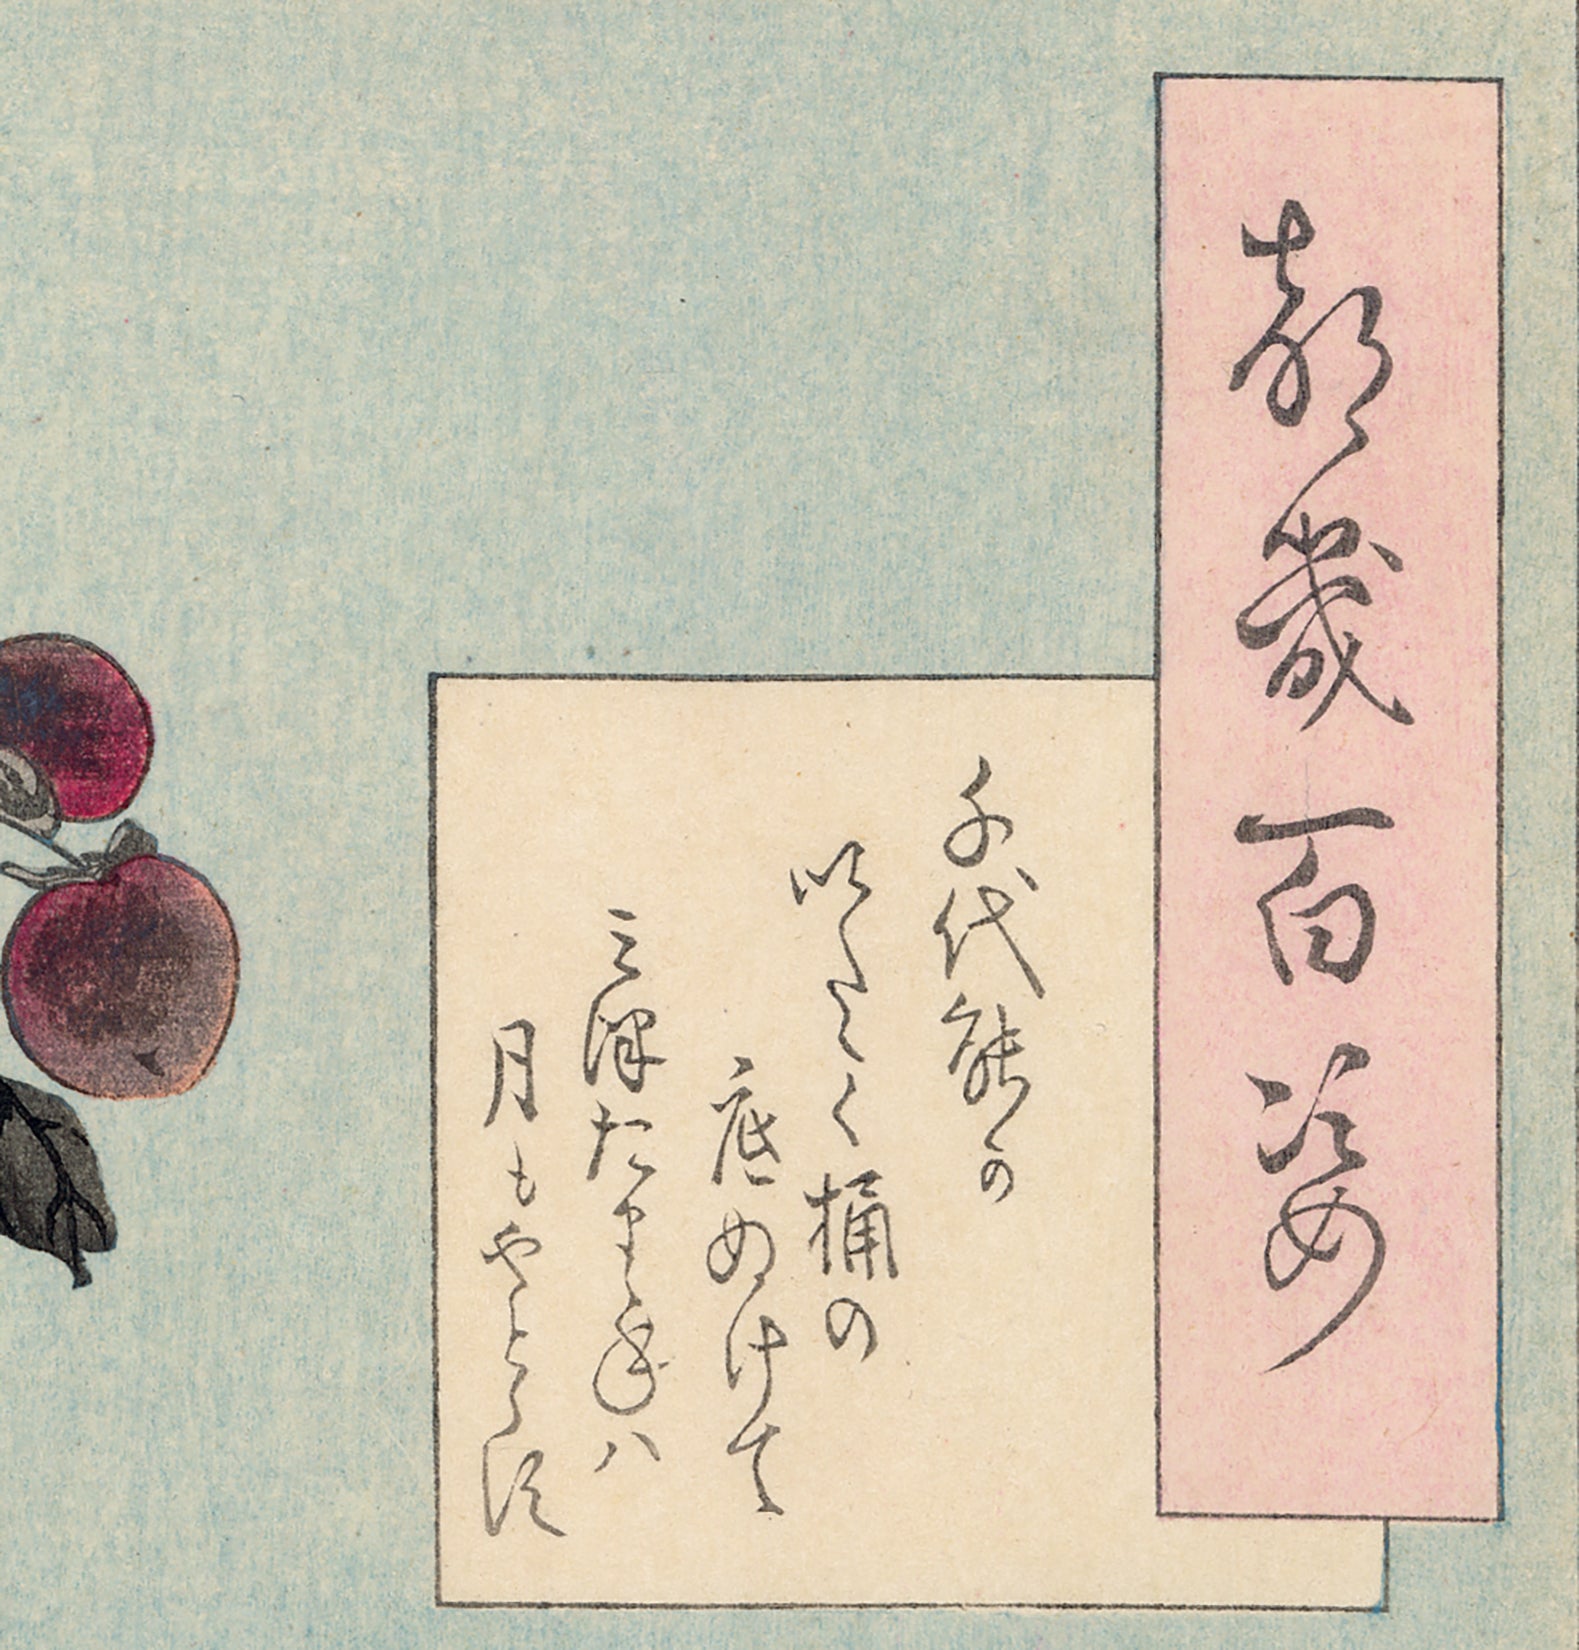 都幾百姿
千代能か
以たゝく桶の
底ぬけて
三津たまら年ハ
月もやとら須